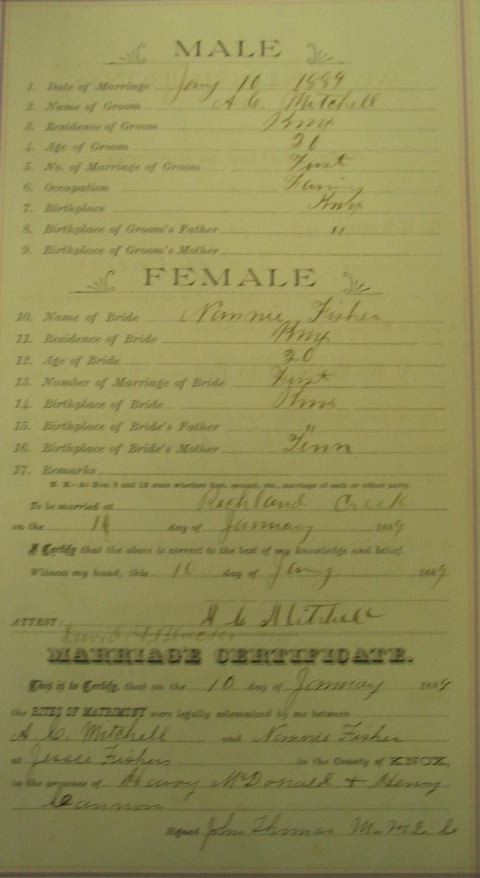 MALE
1. Date of Marriage Jany 10 1889
2. Name of Groom A. C. Mitchell
3. Residence of Groom Knox
4. Age of Groom 20
5. No. of Marriage of Groom First
6. Occupation Farming
7. Birthplace Knox
8. Birthplace of Groom's Father "
9. Birthplace of Groom's Mother
FEMALE
10. Name of Bride Nannie Fisher
11. Residence of Bride Knox
12. Age of Bride 20
13. Number of Marriage of Bride First
14. Birthplace of Bride Knox
15. Birthplace of Bride's Father "
16. Birthplace of Bride's Mother Tenn
17. Remarks
N. B.—At Nos. 5 and 13 state whether first, second, etc., marriage of each or either party.
To be married at Richland Creek
on the day of January 1889
I Certify that the above is correct to the best of my knowledge and belief.
Witness my hand, this 10 day of Jany 1889
A C Mitchell
ATTEST:
David
MARRIAGE CERTIFICATE.
This is to Certify, that on the 10 day of January 1889
the RITES OF MATRIMONY were legally solemnized by me between
A C Mitchell and Nannie Fisher
at Jessie Fishers in the County of KNOX,
in the presence of Harvy McDonald + Henry
Cannon
Signed John Thomas M. M. E. C